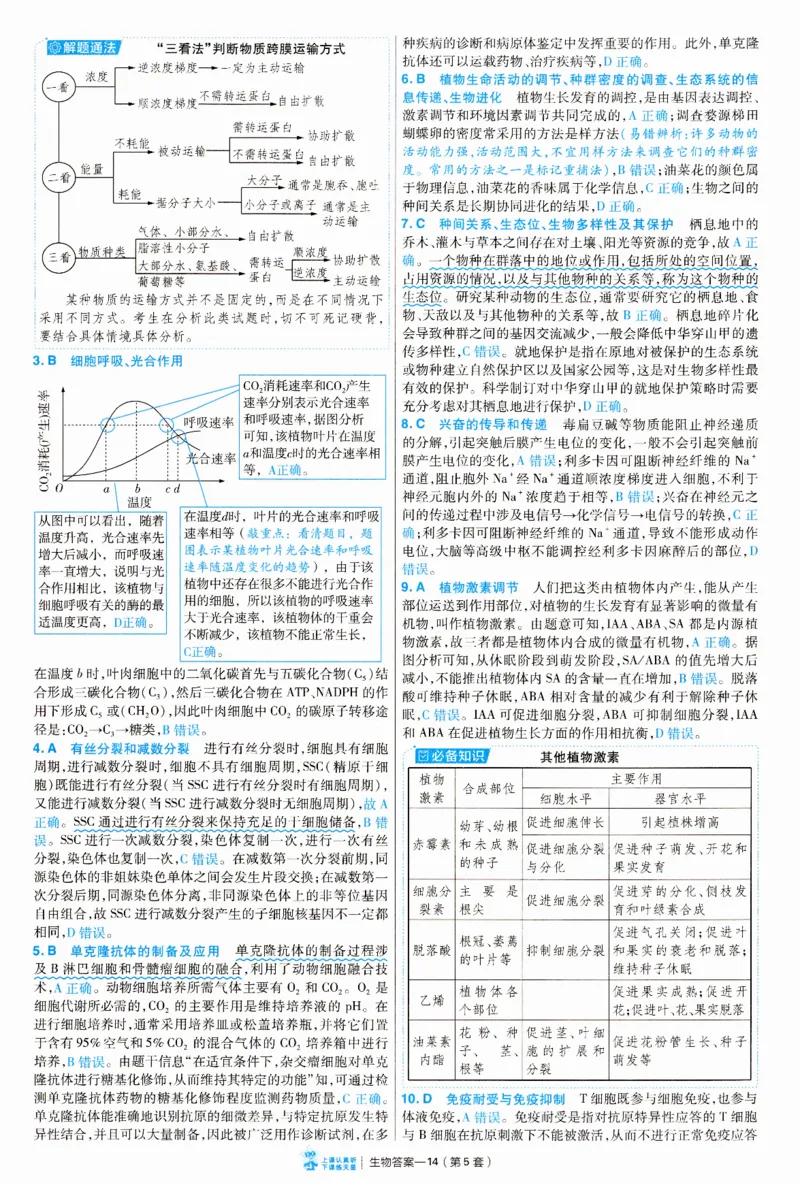 解题通法 “三看法”判断物质跨膜运输方式
一看
浓度
逆浓度梯度→一定为主动运输
顺浓度梯度
不需转运蛋白
自由扩散
二看
能量
不耗能
被动运输
需转运蛋白
协助扩散
不需转运蛋白
自由扩散
耗能
据分子大小
大分子
通常是胞吞、胞吐
小分子或离子
通常是主
动运输
三看
物质种类
气体、小部分水、
脂溶性小分子
自由扩散
大部分水、氨基酸、
葡萄糖等
需转运
蛋白
顺浓度
协助扩散
逆浓度
主动运输
某种物质的运输方式并不是固定的,而是在不同情况下
采用不同方式。考生在分析此类试题时,切不可死记硬背,
要结合具体情境具体分析。
3. B 细胞呼吸、光合作用
CO₂消耗(产生)速率
呼吸速率
光合速率
O a b c d
温度
CO₂消耗速率和CO₂产生
速率分别表示光合速率
和呼吸速率,据图分析
可知,该植物叶片在温度
a和温度c时的光合速率相
等，A正确。
从图中可以看出，随着
温度升高，光合速率先
增大后减小，而呼吸速
率一直增大，说明与光
合作用相比，该植物与
细胞呼吸有关的酶的最
适温度更高，D正确。
在温度d时，叶片的光合速率和呼吸
速率相等（敲重点：看清题目，题
图表示某植物叶片光合速率和呼吸
速率随温度变化的趋势），由于该
植物中还存在很多不能进行光合作
用的细胞，所以该植物的呼吸速率
大于光合速率，该植物体的干重会
不断减少，该植物不能正常生长，
C正确。
在温度 b 时,叶肉细胞中的二氧化碳首先与五碳化合物(C₅)结
合形成三碳化合物(C₃),然后三碳化合物在 ATP、NADPH 的作
用下形成 C₅ 或(CH₂O),因此叶肉细胞中 CO₂ 的碳原子转移途
径是:CO₂→C₃→糖类,B 错误。
4. A 有丝分裂和减数分裂 进行有丝分裂时,细胞具有细胞
周期,进行减数分裂时,细胞不具有细胞周期,SSC(精原干细
胞)既能进行有丝分裂(当 SSC 进行有丝分裂时有细胞周期),
又能进行减数分裂(当 SSC 进行减数分裂时无细胞周期),故 A
正确。SSC 通过进行有丝分裂来保持充足的干细胞储备,B 错
误。SSC 进行一次减数分裂,染色体复制一次,进行一次有丝
分裂,染色体也复制一次,C 错误。在减数第一次分裂前期,同
源染色体的非姐妹染色单体之间会发生片段交换;在减数第一
次分裂后期,同源染色体分离,非同源染色体上的非等位基因
自由组合,故 SSC 进行减数分裂产生的子细胞核基因不一定都
相同,D 错误。
5. B 单克隆抗体的制备及应用 单克隆抗体的制备过程涉
及 B 淋巴细胞和骨髓瘤细胞的融合,利用了动物细胞融合技
术,A 正确。动物细胞培养所需气体主要有 O₂ 和 CO₂。O₂ 是
细胞代谢所必需的,CO₂ 的主要作用是维持培养液的 pH。在
进行细胞培养时,通常采用培养皿或松盖培养瓶,并将它们置
于含有 95%空气和 5% CO₂ 的混合气体的 CO₂ 培养箱中进行
培养,B 错误。由题干信息“在适宜条件下,杂交瘤细胞对单克
隆抗体进行糖基化修饰,从而维持其特定的功能”知,可通过检
测单克隆抗体药物的糖基化修饰程度监测药物质量,C 正确。
单克隆抗体能准确地识别抗原的细微差异,与特定抗原发生特
异性结合,并且可以大量制备,因此被广泛用作诊断试剂,在多
种疾病的诊断和病原体鉴定中发挥重要的作用。此外,单克隆
抗体还可以运载药物、治疗疾病等,D 正确。
6. B 植物生命活动的调节、种群密度的调查、生态系统的信
息传递、生物进化 植物生长发育的调控,是由基因表达调控、
激素调节和环境因素调节共同完成的,A 正确;调查婺源梯田
蝴蝶卵的密度常采用的方法是样方法(易错辨析:许多动物的
活动能力强,活动范围大,不宜用样方法来调查它们的种群密
度。常用的方法之一是标记重捕法),B 错误;油菜花的颜色属
于物理信息,油菜花的香味属于化学信息,C 正确;生物之间的
种间关系是长期协同进化的结果,D 正确。
7. C 种间关系、生态位、生物多样性及其保护 栖息地中的
乔木、灌木与草本之间存在对土壤、阳光等资源的竞争,故 A 正
确。一个物种在群落中的地位或作用,包括所处的空间位置,
占用资源的情况,以及与其他物种的关系等,称为这个物种的
生态位。研究某种动物的生态位,通常要研究它的栖息地、食
物、天敌以及与其他物种的关系等,故 B 正确。栖息地碎片化
会导致种群之间的基因交流减少,一般会降低中华穿山甲的遗
传多样性,C 错误。就地保护是指在原地对被保护的生态系统
或物种建立自然保护区以及国家公园等,这是对生物多样性最
有效的保护。科学制订对中华穿山甲的就地保护策略时需要
充分考虑对其栖息地进行保护,D 正确。
8. C 兴奋的传导和传递 毒扁豆碱等物质能阻止神经递质
的分解,引起突触后膜产生电位的变化,一般不会引起突触前
膜产生电位的变化,A 错误;利多卡因可阻断神经纤维的 Na⁺
通道,阻止胞外 Na⁺ 经 Na⁺ 通道顺浓度梯度进入细胞,不利于
神经元胞内外的 Na⁺ 浓度趋于相等,B 错误;兴奋在神经元之
间的传递过程中涉及电信号→化学信号→电信号的转换,C 正
确;利多卡因可阻断神经纤维的 Na⁺ 通道,导致不能形成动作
电位,大脑等高级中枢不能调控经利多卡因麻醉后的部位,D
错误。
9. A 植物激素调节 人们把这类由植物体内产生,能从产生
部位运送到作用部位,对植物的生长发育有显著影响的微量有
机物,叫作植物激素。由题意可知,IAA、ABA、SA 都是内源植
物激素,故三者都是植物体内合成的微量有机物,A 正确。据
图分析可知,从休眠阶段到萌发阶段,SA/ABA 的值先增大后
减小,不能推出植物体内 SA 的含量一直在增加,B 错误。脱落
酸可维持种子休眠,ABA 相对含量的减少有利于解除种子休
眠,C 错误。IAA 可促进细胞分裂,ABA 可抑制细胞分裂,IAA
和 ABA 在促进植物生长方面的作用相抗衡,D 错误。
必备知识 其他植物激素
植物
激素
合成部位
主要作用
细胞水平 器官水平
赤霉素
幼芽、幼根
和未成熟
的种子
促进细胞伸长 引起植株增高
促进细胞分裂
与分化
促进种子萌发、开花和
果实发育
细胞分
裂素
主要是
根尖
促进细胞分裂
促进芽的分化、侧枝发
育和叶绿素合成
脱落酸
根冠、萎蔫
的叶片等
抑制细胞分裂
促进气孔关闭;促进叶
和果实的衰老和脱落;
维持种子休眠
乙烯
植物体各
个部位
促进果实成熟;促进开
花;促进叶、花、果实脱落
油菜素
内酯
花粉、种
子、茎、
根等
促进茎、叶细
胞的扩展和
分裂
促进花粉管生长、种子
萌发等
10. D 免疫耐受与免疫抑制 T 细胞既参与细胞免疫,也参与
体液免疫,A 错误。免疫耐受是指对抗原特异性应答的 T 细胞
与 B 细胞在抗原刺激下不能被激活,从而不进行正常免疫应答
上课认真听
下课练天星
生物答案—14（第 5 套）